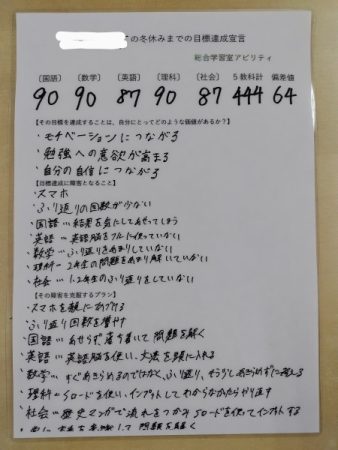 の冬休みまでの目標達成宣言
総合学習室アビリティ
〔国語〕 〔数学〕 〔英語〕 〔理科〕 〔社会〕 5教科計 偏差値
90 90 87 90 87 444 64
【その目標を達成することは、自分にとってどのような価値があるか？】
・モチベーションにつながる
・勉強への意欲が高まる
・自分の自信につながる
【目標達成に障害となること】
・スマホ
・ふり返りの回数が少ない
・国語…結果を気にしてあせってしまう
・英語…英語脳をフルに使っていない
・数学…ふり返りをあまりしていない
・理科…2年生の問題をあまり解いていない
・社会…1・2年生のふり返りをしていない
【その障害を克服するプラン】
・スマホを親にあずける
・ふり返り回数を増やす
・国語…あせらず落ち着いて問題を解く
・英語…英語脳を使い、文法を頭に入れる
・数学…すぐあきらめるのではなく、ふり返り、そうしてあきらめずに考える
・理科…5ロードを使い、インプットしてわからなかったらやり直す
・社会…歴史マンガで流れをつかみ5ロードを使ってインプットする
して問題を解く